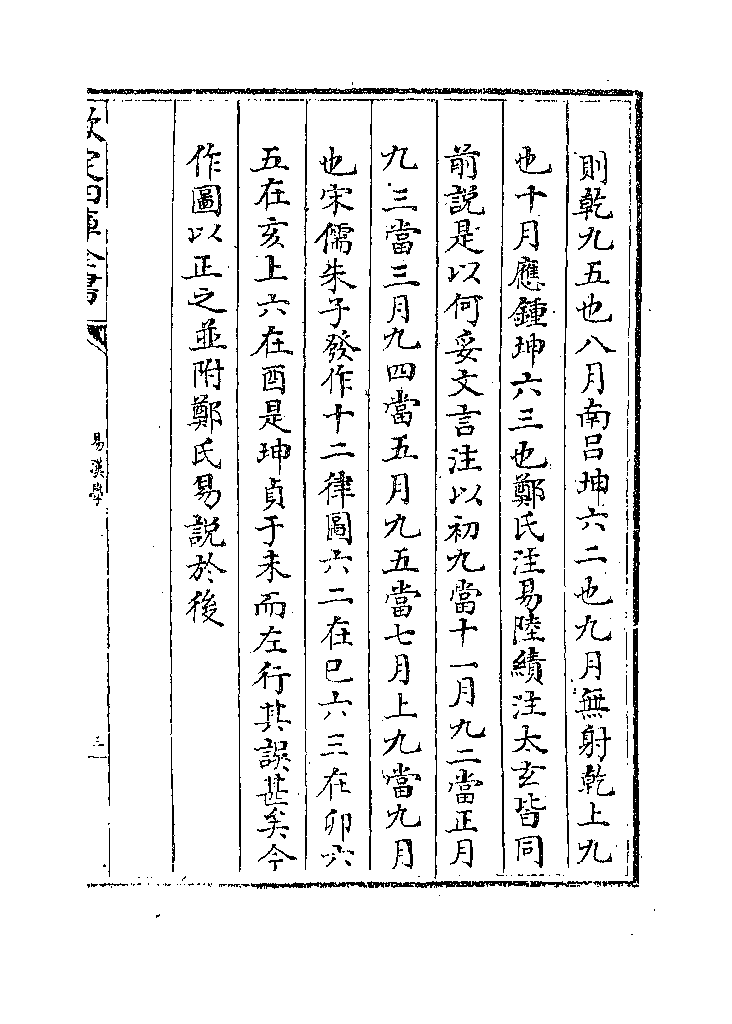 則乾九五也八月南呂坤六二也九月無射乾上九
也十月應鍾坤六三也鄭氏注易陸績注太玄皆同
前說是以何妥文言注以初九當十一月九二當正月
九三當三月九四當五月九五當七月上九當九月
也宋儒朱子發作十二律圖六二在巳六三在卯六
五在亥上六在酉是坤貞于未而左行其誤甚矣今
作圖以正之並附鄭氏易說於後
欽定四庫全書
易漢學
三